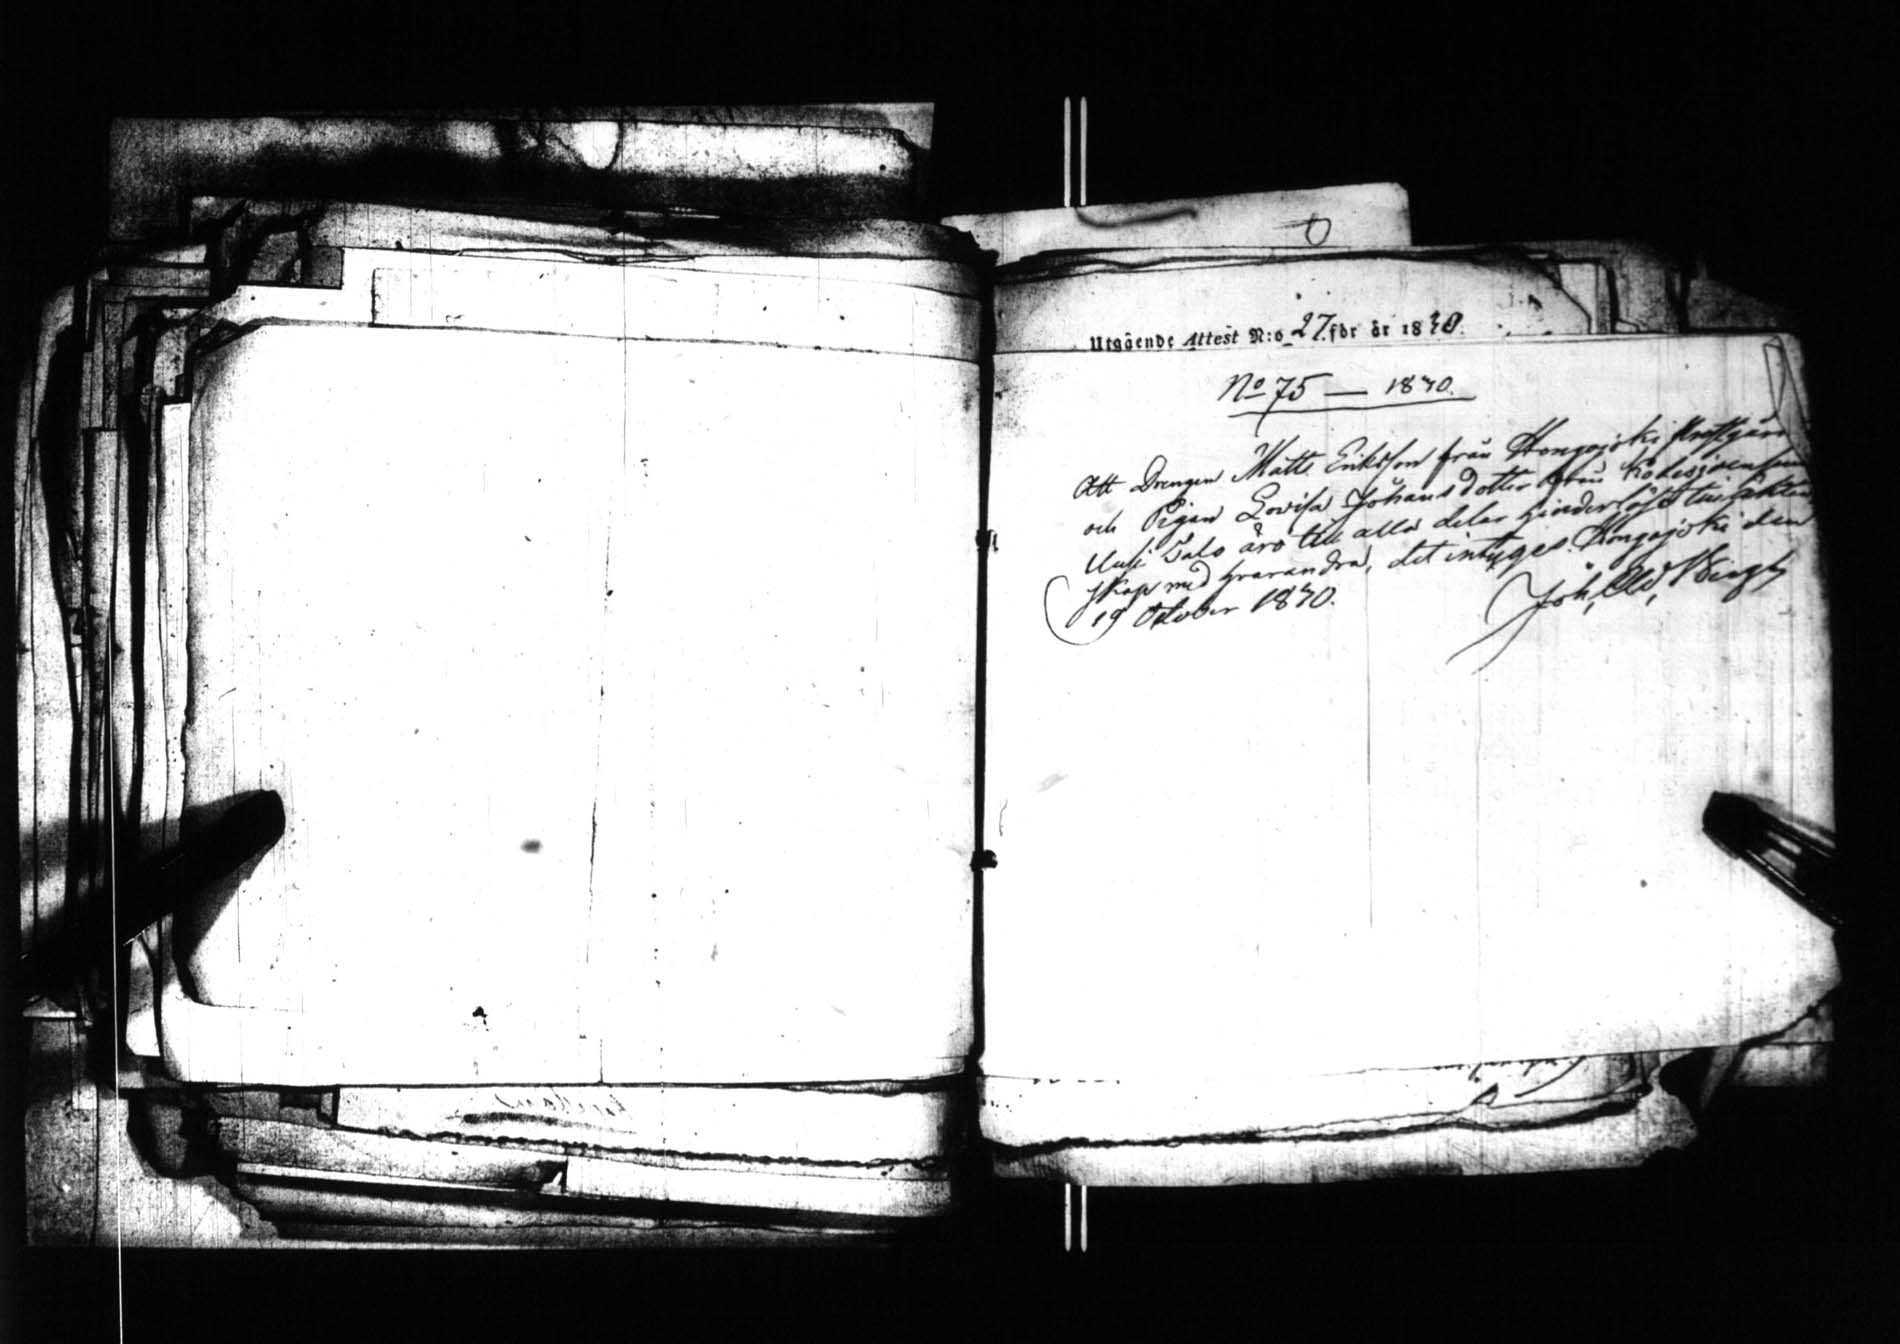 Utgående Attest N:o 27. för år 1870.
No 75 — 1870.
Att Drengen Matts Eriksson från Hongojoki
och Pigan Lovisa Johansdotter från
Salo äro till alla delar hinderlösa till äkten
skap med hvarandra, det intygas. Hongojoki den
19 October 1870.
Joh, Ad,